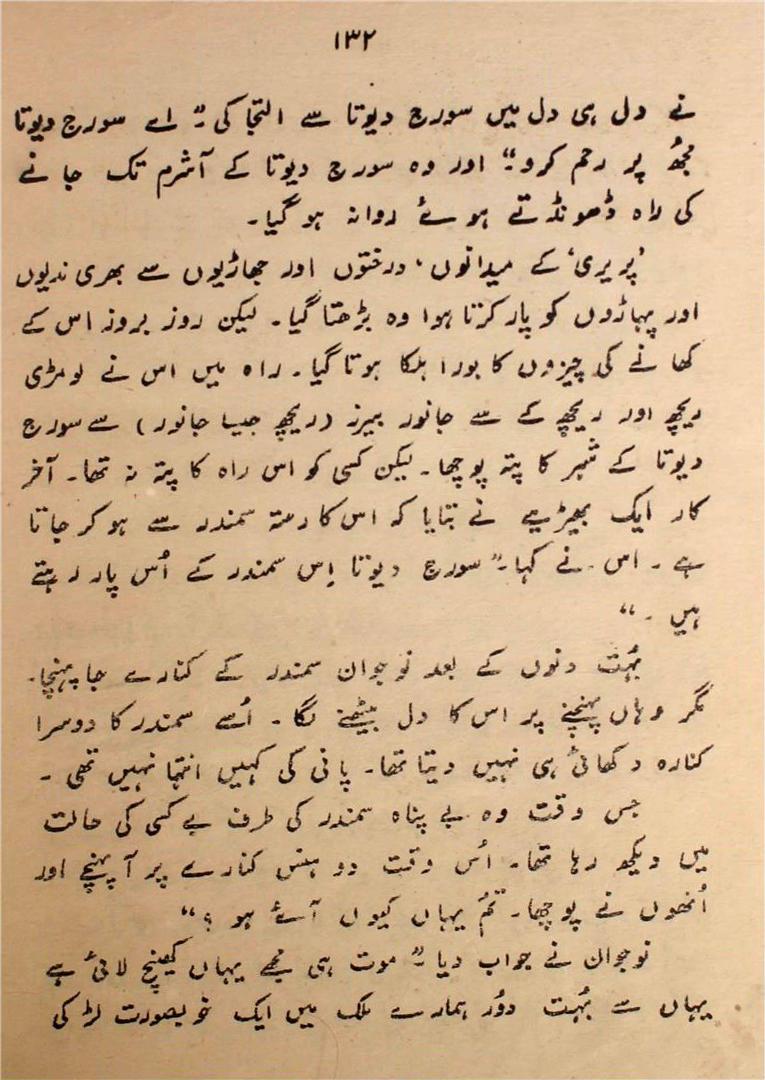 ۱۳۲
نے دل ہی دل میں سورج دیوتا سے التجا کی۔" اے سورج دیوتا
مجھُ پر رحم کرو۔" اور وہ سورج دیوتا کے آشرم تک جانے
کی راہ ڈھونڈتے ہوئے روانہ ہو گیا۔
'پریری' کے میدانوں، درختوں اور جھاڑیوں سے بھری ندیوں
اور پہاڑوں کو پار کرتا ہوا وہ بڑھتا گیا۔ لیکن روز بروز اس کے
کھانے کی چیزوں کا بورا ہلکا ہوتا گیا۔ راہ میں اس نے لومڑی
ریچھ اور ریچھ کے سے جانور بیرز (ریچھ جیسا جانور) سے سورج
دیوتا کے شہر کا پتہ پوچھا۔ لیکن کسی کو اس راہ کا پتہ نہ تھا۔ آخر
کار ایک بھیڑیے نے بتایا کہ اس کا رستہ سمندر سے ہو کر جاتا
ہے۔ اس نے کہا۔" سورج دیوتا اِس سمندر کے اُس پار رہتے
ہیں۔"
بہُت دنوں کے بعد نوجوان سمندر کے کنارے جا پہنچا۔
مگر وہاں پہنچنے پر اس کا دل بیٹھنے لگا۔ اُسے سمندر کا دوسرا
کنارہ دکھائی ہی نہیں دیتا تھا۔ پانی کی کہیں انتہا نہیں تھی۔
جس وقت وہ بے پناہ سمندر کی طرف بے کسی کی حالت
میں دیکھ رہا تھا۔ اُس وقت دو ہنس کنارے پر آ پہنچے اور
اُنھوں نے پوچھا۔" تمُ یہاں کیوں آئے ہو؟"
نوجوان نے جواب دیا۔" موت ہی مجھے یہاں کھینچ لائی ہے
یہاں سے بہُت دوُر ہمارے ملک میں ایک خوبصورت لڑکی